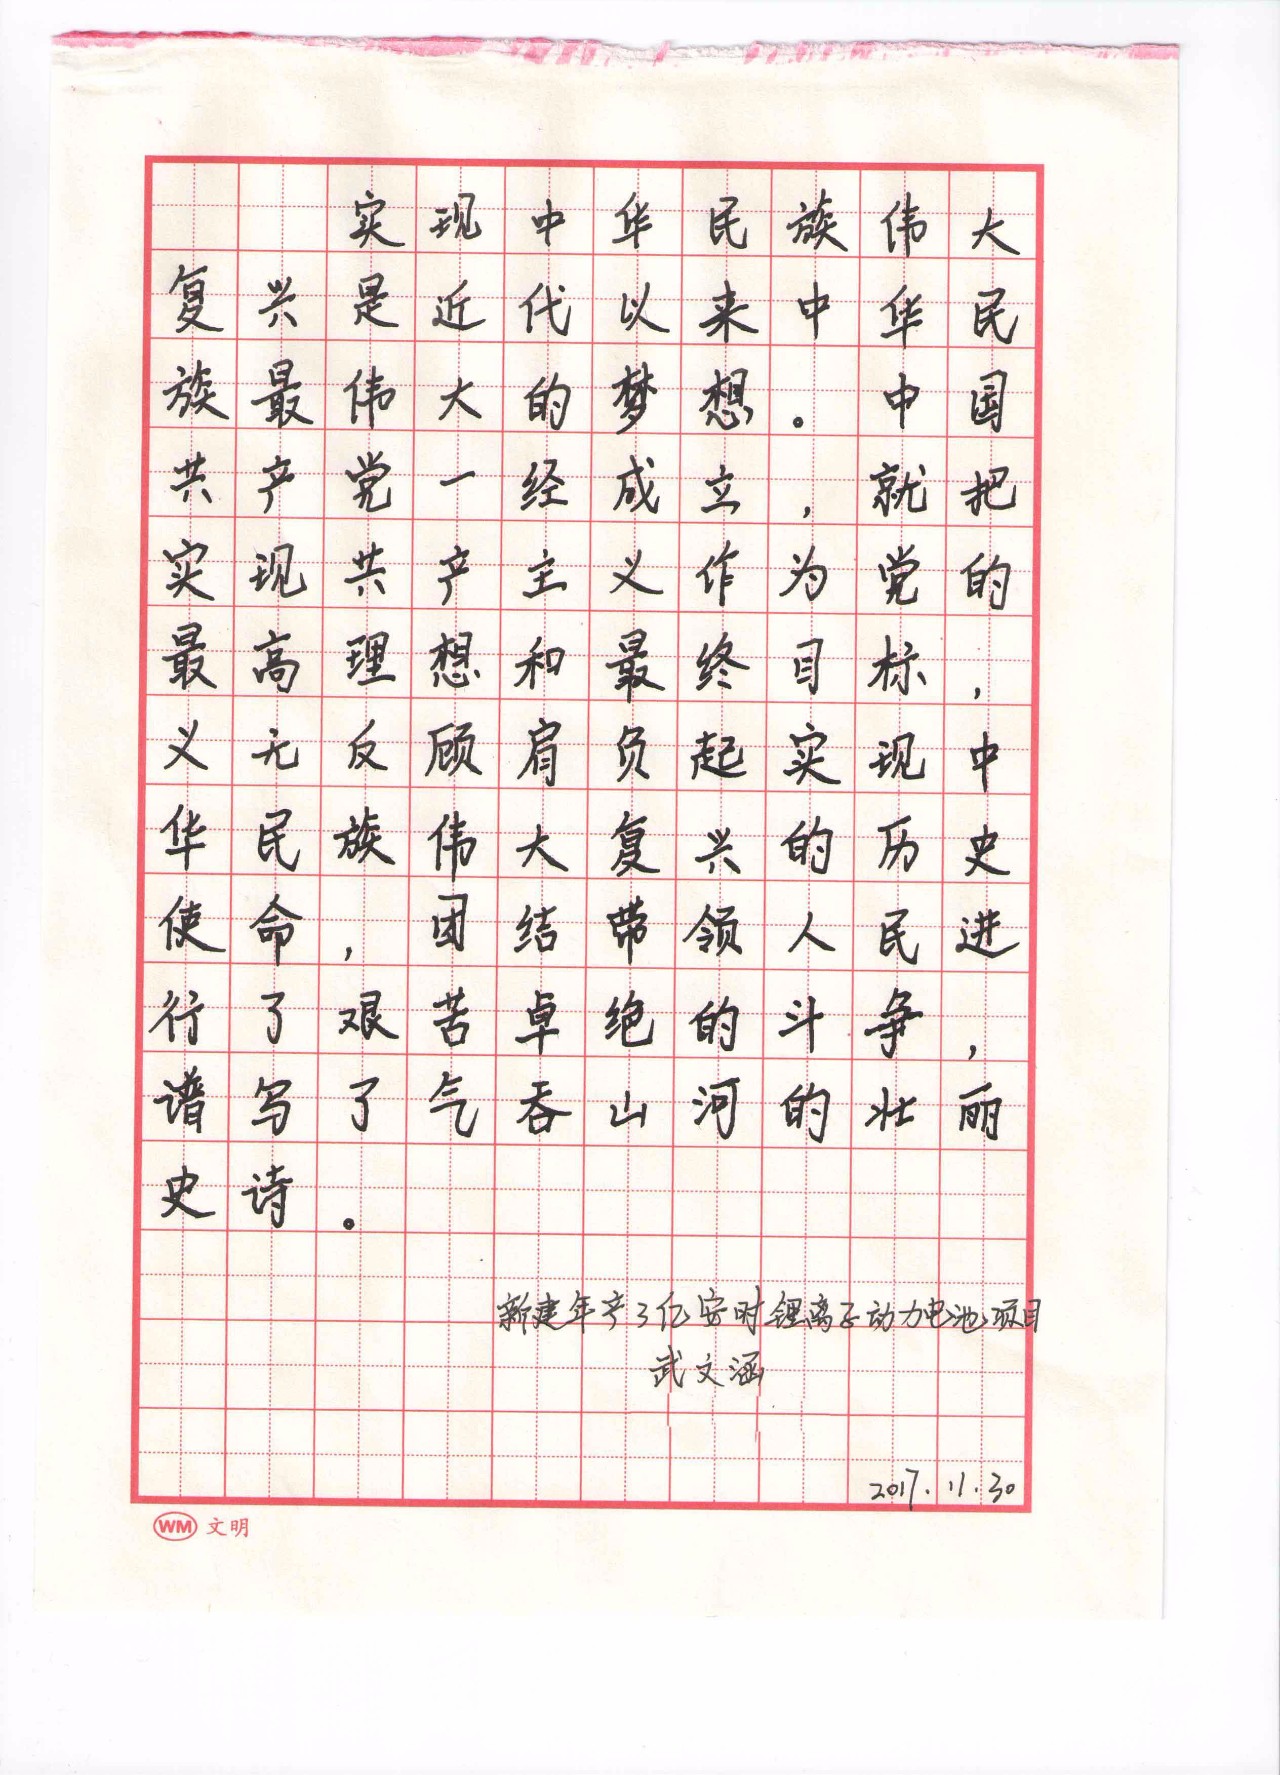 实现中华民族伟大
复兴是近代以来中华民
族最伟大的梦想。中国
共产党一经成立,就把
实现共产主义作为党的
最高理想和最终目标,
义无反顾肩负起实现中
华民族伟大复兴的历史
使命,团结带领人民进
行了艰苦卓绝的斗争,
谱写了气吞山河的壮丽
史诗。
新建年产3亿安时锂离子动力电池项目
武文涵
2017.11.30
WM 文明